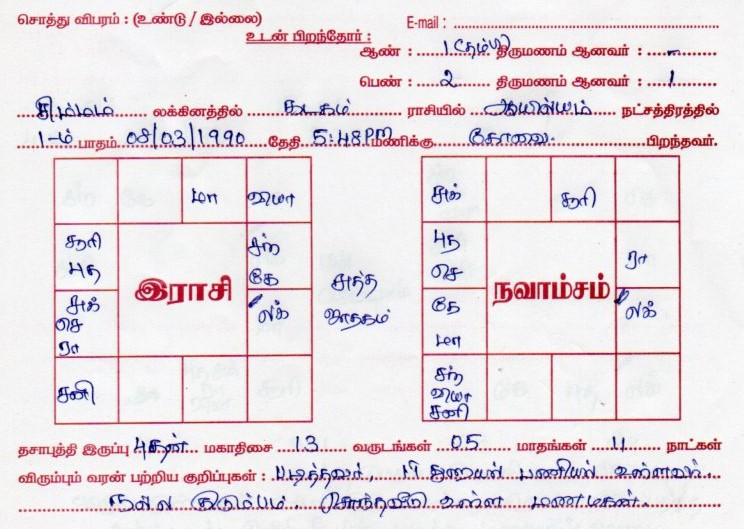 சொத்து விபரம் : (உண்டு / இல்லை) E-mail :
உடன் பிறந்தோர் :
ஆண் : 1 (தம்பி) திருமணம் ஆனவர் : -
பெண் : 2 திருமணம் ஆனவர் : 1
சிம்மம் லக்கினத்தில் கடகம் ராசியில் ஆயில்யம் நட்சத்திரத்தில்
1-ம் பாதம் 08/03/1990 தேதி 5:48PM மணிக்கு கோவை பிறந்தவர்.
மா
சூரி
புத
சுக்
செ
ரா
சனி
இராசி
சந்
கே
லக்
சுத்த
ஜாதகம்
சுக்
சூரி
புத
செ
கே
மா
சந்
சனி
நவாம்சம்
ரா
லக்
தசாபுத்தி இருப்பு புதன் மகாதிசை 13 வருடங்கள் 05 மாதங்கள் 11 நாட்கள்
விரும்பும் வரன் பற்றிய குறிப்புகள் : படித்தவர், பணியில் உள்ளவர்.
நல்ல குடும்பம். சொந்தவீடு உள்ள மணமகன்.